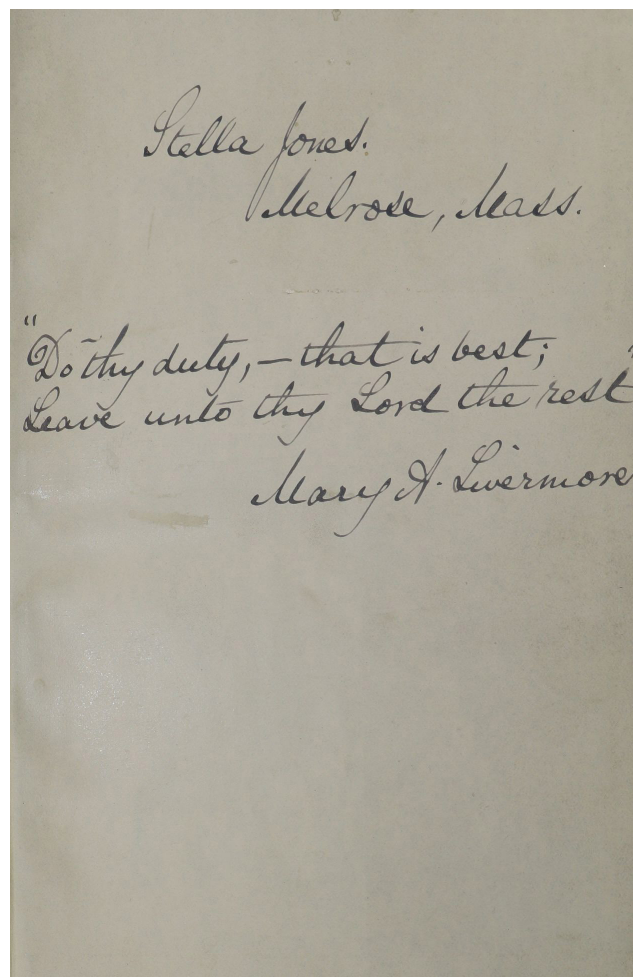 Stella Jones.
Melrose, Mass.
"Do thy duty,—that is best;
Leave unto thy Lord the rest"
Mary A. Livermore